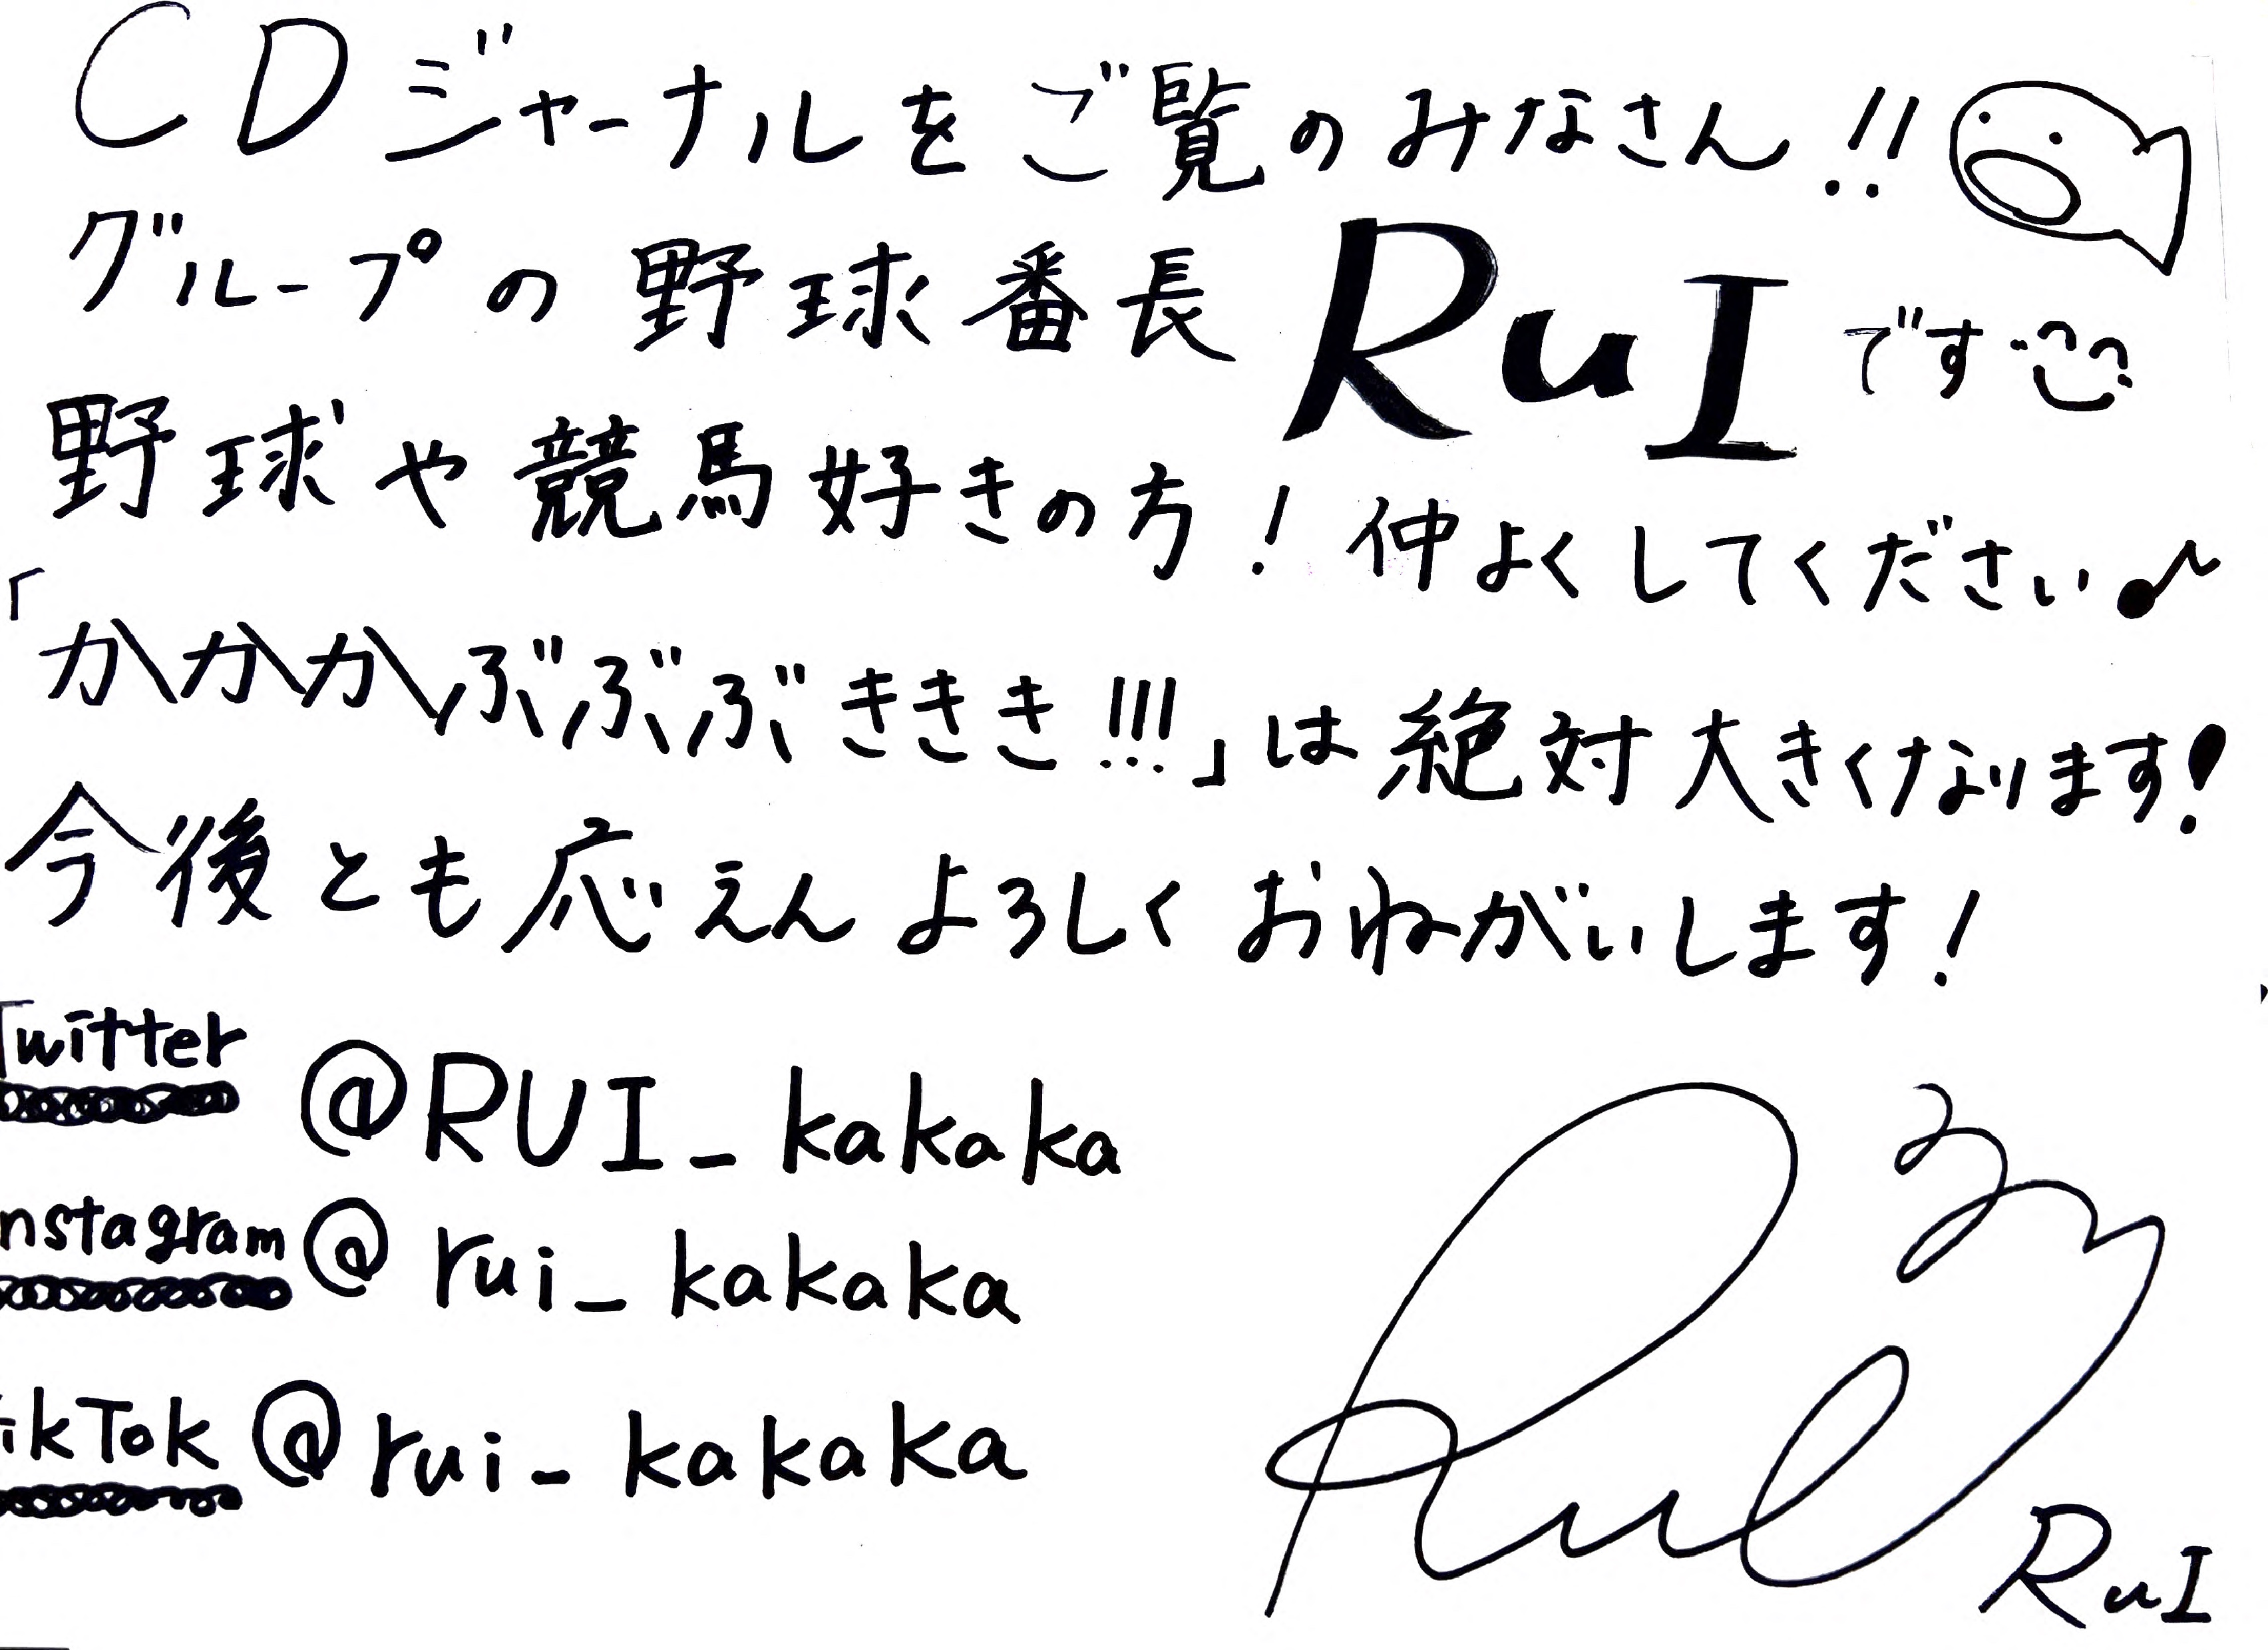 CDジャーナルをご覧のみなさん!!
グループの野球番長RuIです
野球や競馬好きの方！仲よくしてください♪
「かかかぶぶぶききき!!!」は絶対大きくなります！
今後とも応えんよろしくおねがいします！
Twitter @RUI_kakaka
nstagram @rui_kakaka
ikTok @rui_kakaka
RuI